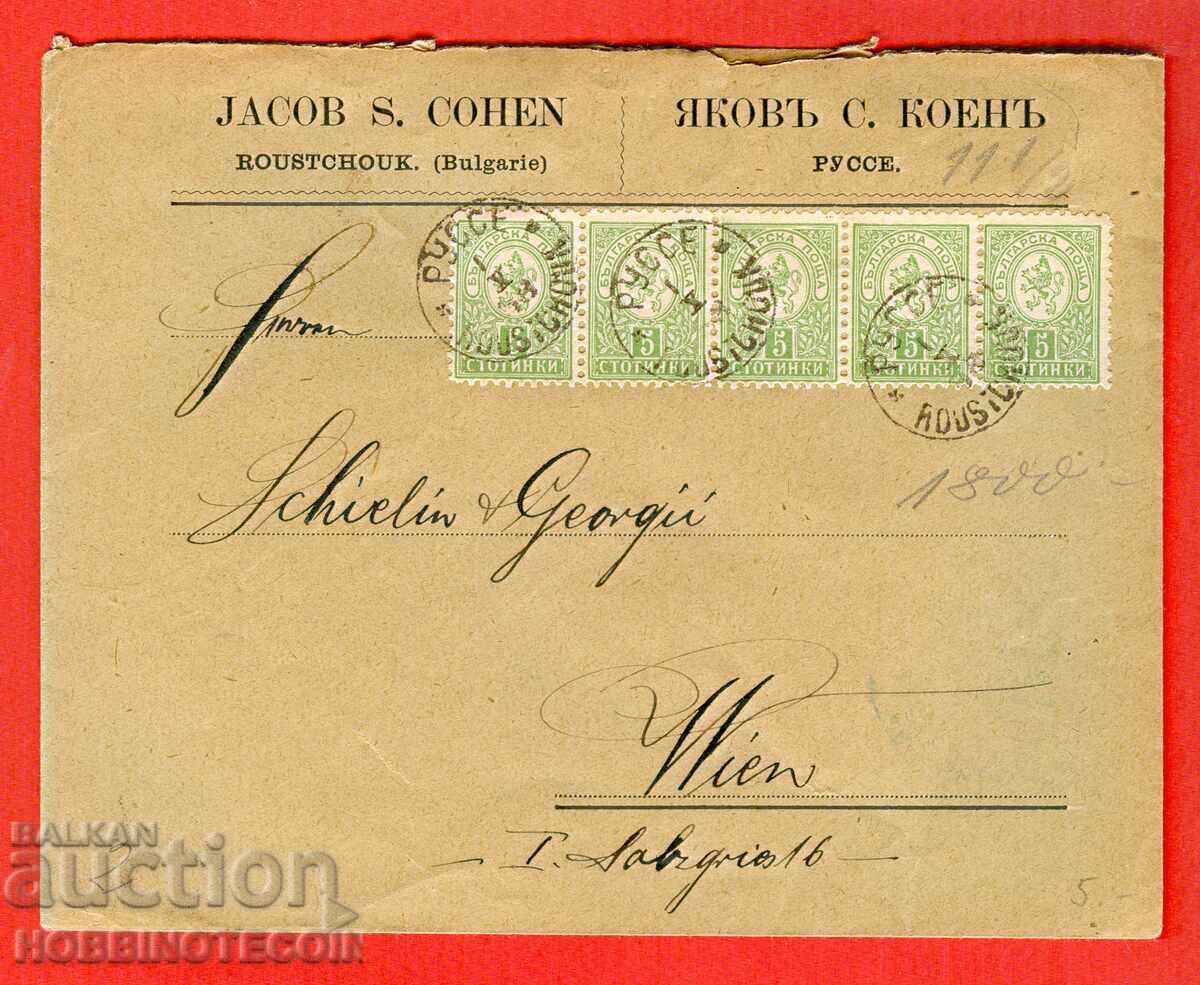 JACOB S. COHEN
ROUSTCHOUK. (Bulgarie)
ЯКОВЪ С. КОЕНЪ
РУССЕ.
11 1/2
БЪЛГАРСКА ПОЩА БЪЛГАРСКА ПОЩА БЪЛГАРСКА ПОЩА БЪЛГАРСКА ПОЩА БЪЛГАРСКА ПОЩА
5 5 5 5 5
СТОТИНКИ СТОТИНКИ СТОТИНКИ СТОТИНКИ СТОТИНКИ
РУССЕ ROUSTCHOUK
РУССЕ ROUSTCHOUK
РУССЕ ROUSTCHOUK
Schielin & Georgii
Wien
I. Salzgries 16
5.-
BALKAN
auction
HOBBINOTECOIN